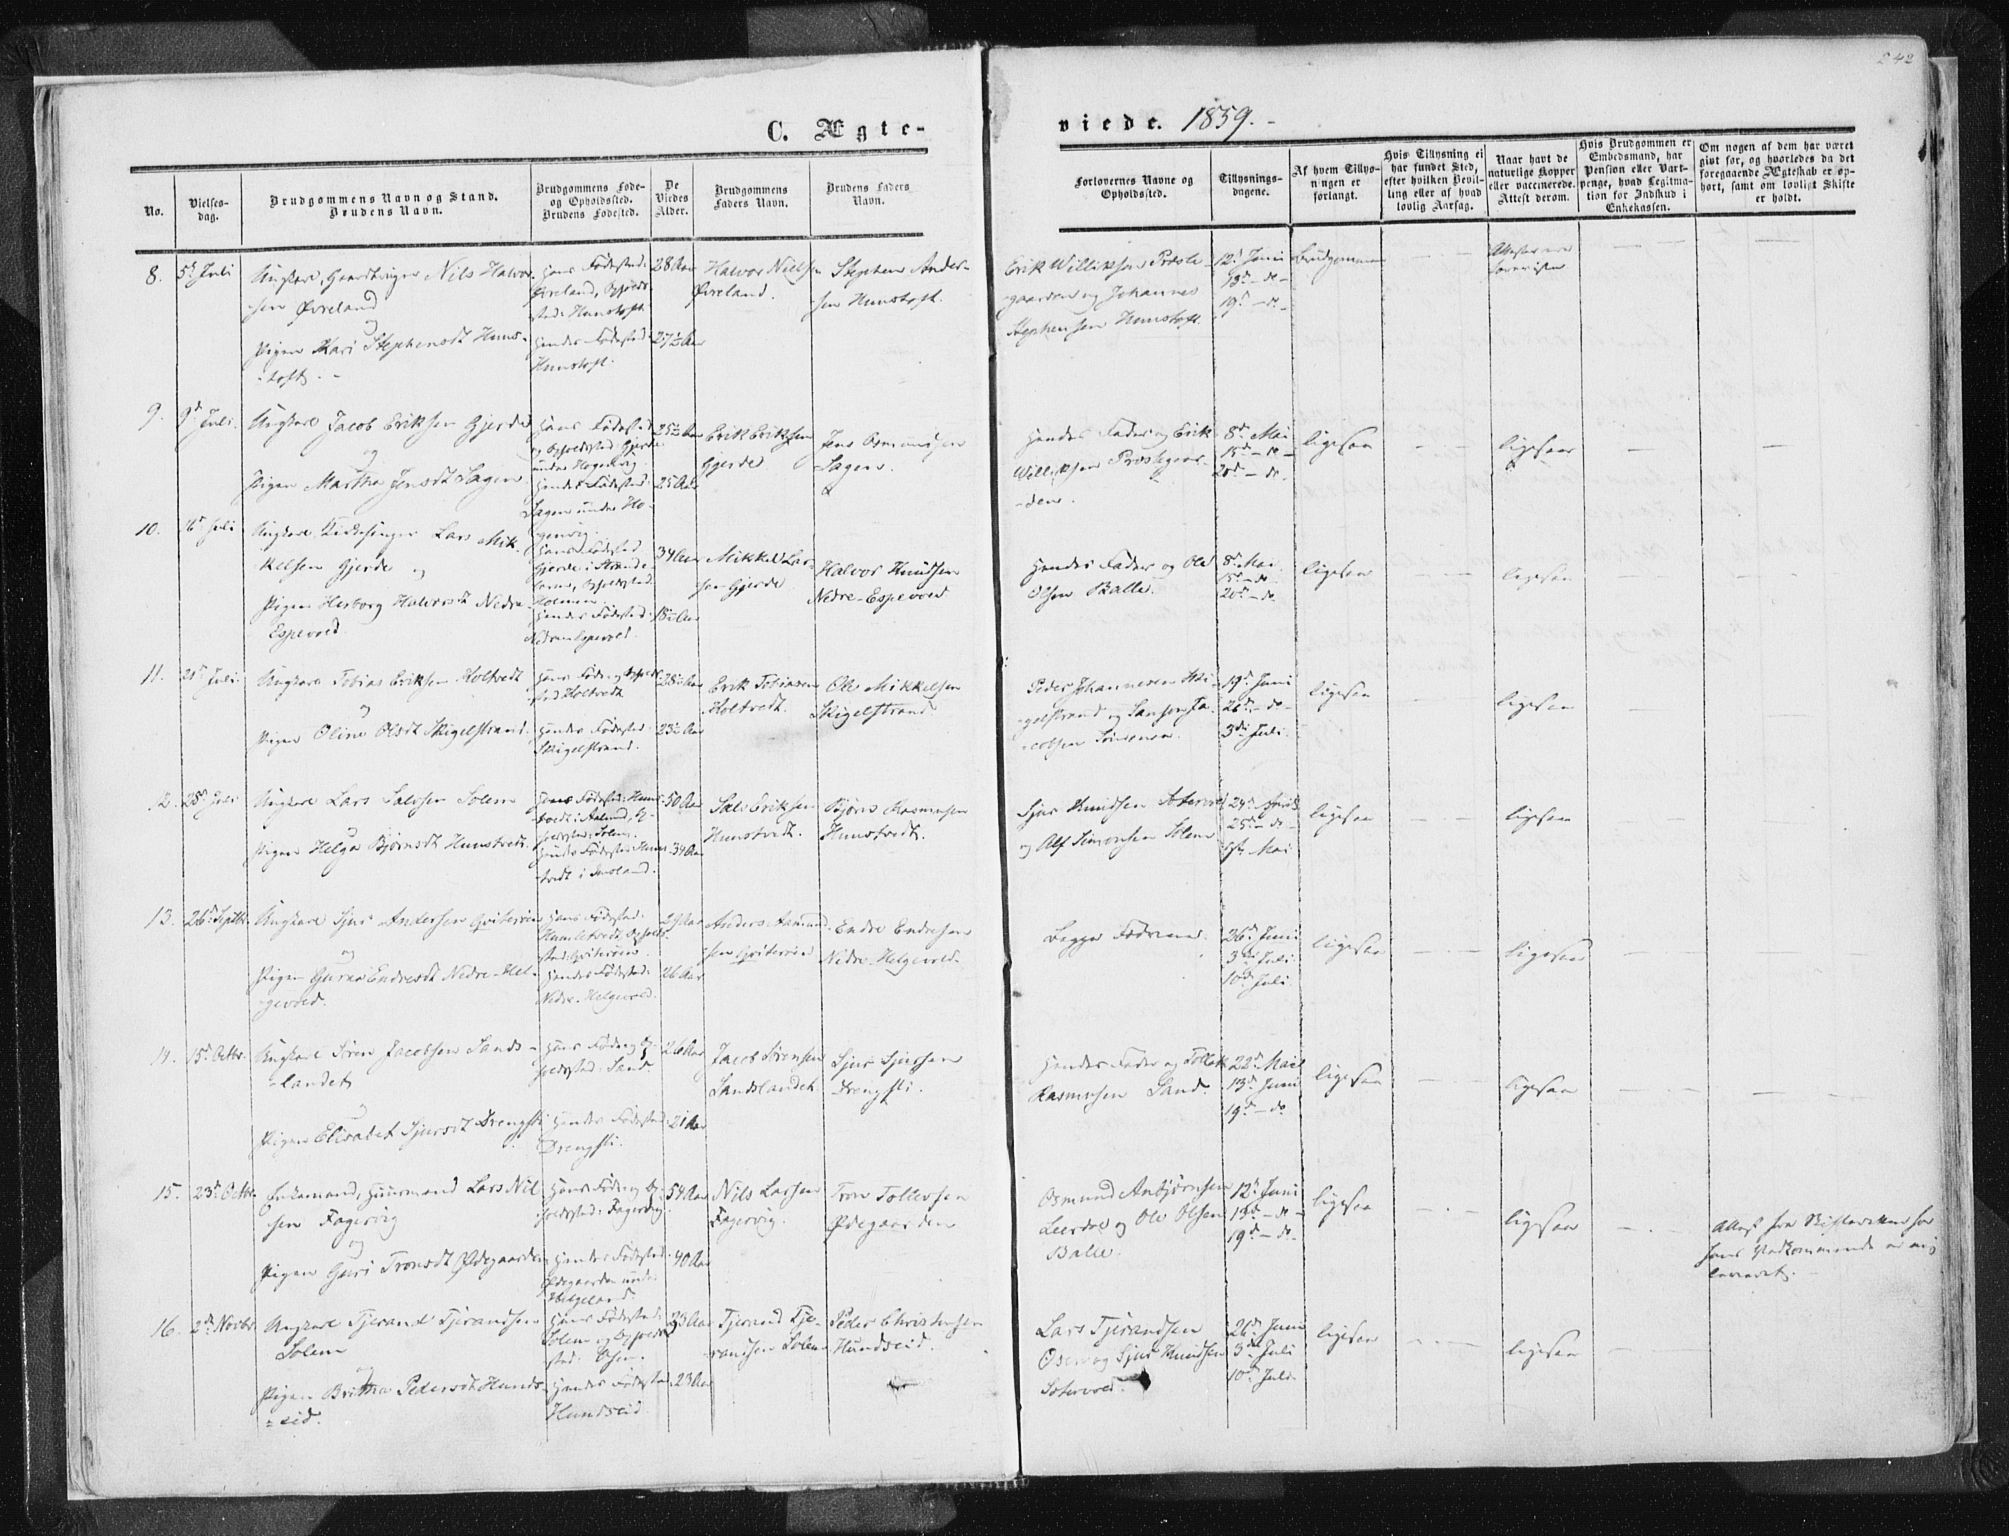 242
C. Ægte-
viede. 1859.-
No.
Vielses-
dag.
Brudgommens Navn og Stand.
Brudens Navn.
Brudgommens Føde-
og Opholdssted.
Brudens Fødested.
De
Viedes
Alder.
Brudgommens
Faders Navn.
Brudens Faders
Navn.
Forlovernes Navne og
Opholdssted.
Tillysnings-
dagene.
Af hvem Tillys-
ningen er
forlangt.
Hvis Tillysning ei
har fundet Sted,
efter hvilken Bevil-
ling eller af hvad
lovlig Aarsag.
Naar havt de
naturlige Kopper
eller vaccinerede.
Attest derom.
Hvis Brudgommen er
Embedsmand, har
Pension eller Vart-
penge, hvad Legitima-
tion for Indskud i
Enkekassen.
Om nogen af dem har været
gift før, og hvorledes da det
foregaaende Ægteskab er op-
hørt, samt om lovligt Skifte
er holdt.
8.
5te Juli
Ungkarl, Gaardbruger Nils Halvor-
sen Øvreland
og
Pigen Kari Stephensdt Huns-
-toft. -
Hans Fødested:
Øvreland, Opholds
sted: Hunstoft.
Hendes Fødested:
Hunstoft.
28 Aar
27½ Aar
Halvor Nielsen
Øvreland.
Stephen Ander-
sen Hunstoft.
Erik Williksen Præste-
-gaarden og Johannes
Stephensen Hunstoft.
12te Juni
13de - do -
19de - do -
Brudgommen
Attester ere
foreviste
9.
9de Juli
Ungkarl Jacob Eriksen Gjerde
og
Pigen Martha Jensdt Hagen
Hans Fødested
og Opholdssted Gjerde
under Hogenvig.
Hendes Fødested
Hagen under Ho-
genvig.
25½ Aar
25 Aar
Erik Eriksen
Gjerde
Jens Osmundsen
Hagen.
Hendes Fader og Erik
Williksen Præstegaar-
-den.
8de Mai
15de - do -
20de - do.
ligesaa
ligesaa
10.
Juli
Ungkarl, Kirkesanger Lars Mik-
kelsen Gjerde og
Pigen Herborg Halvorsdt Nedre-
Espevold.
Hans Fødested
Gjerde i Strande-
barm, Opholdssted
Holmen.
Hendes Fødested:
Nedre Espevold.
34 Aar
18½ Aar
Mikkel Lar-
sen Gjerde
Halvor Knudsen
Nedre-Espevold
Hendes Fader og Ole
Olsen Balle.
8de Mai
15de - do.
20de - do
ligesaa
ligesaa
11.
21de Juli
Ungkarl Tobias Eriksen Holtvedt
og
Pigen Oline Olsdt Skigelstrand.
Hans Føde- og Opholds-
sted Holtvedt
Hendes Fødested
Skigelstrand.
28½ Aar
23½ Aar
Erik Tobiasen
Holtvedt.
Ole Mikkelsen
Skigelstrand
Peder Johannesen Ski-
-gelstrand og Ja-
-cobsen
19de Juni
26de - do -
3die Juli.
ligesaa
ligesaa
12.
28de Juli
Ungkarl Lars Salvesen Solem
og
Pigen Helga Bjørnsdt Hunstvedt.
Hans Fødested: Huns-
-tvedt i Op-
holdssted: Solem.
Hendes Fødested: Huns-
-tvedt i
50 Aar
34 Aar
Eriksen
Hunstvedt.
Bjørn Rasmusen
Hunstvedt.
Sjur Knudsen Sotervold
og Alf Simonsen Solem
24de April
25de - do -
1ste Mai
ligesaa
ligesaa
13.
26de Septbr.
Ungkarl Sjur Andersen Qviterøen
og
Pigen Guroe Endresdt Nedre-Hel-
-gevold.
Hans Fødested:
Humletvedt, Opholds-
sted: Qviterøen.
Hendes Fødested:
Nedre-Helgevold.
29 Aar
26 Aar
Anders Aamund-
sen Qviterøen
Endre Endresen
Nedre-Helgevold.
Begges Fædrene.
26de Juni
3die Juli
10de Juli.
ligesaa
ligesaa
14.
15de Octbr.
Ungkarl Søren Jacobsen Sands-
-landet
og
Pigen Elisabet Sjursdt Drengsli
Hans Føde og Op-
holdssted: Sand.
Hendes Fødested
Drengsli.
26 Aar
21 Aar
Jacob Sørensen
Sandslandet
Sjur Sjursen
Drengsli.
Hendes Fader og Tollak
Rasmusen Sand.
22de Mai
13de Juni
19de - do
ligesaa
ligesaa
15.
23de Octbr.
Enkemand, Huusmand Lars Nil-
sen Fagervig
og
Pigen Guri Tronsdt Ødegaarden
Hans Føde og Op-
holdssted: Fagervig.
Hendes Fødested:
Ødegaarden under
Helgeland.
54 Aar
40 Aar
Nils Larsen
Fagervig.
Tron Tollevsen
Ødegaarden
Osmund Anbjørnsen
Leerdal og Ole Olsen
Balle.
12te Juni
13de - do -
19de - do.
ligesaa
ligesaa
Attest fra Skifteretten for
hans Vedkommende er mig
leveret.
16.
2den Novbr.
Ungkarl Tjerand Tjerandsen
Solem
og
Pigen Brittha Pedersdt Hunds-
-eid.
Hans Fødested:
Solem og Opholds-
sted: Osen.
Hendes Fødested
Hundseid
33 Aar
23 Aar
Tjerand Tje-
randsen Solem
Peder Christensen
Hundseid.
Lars Tjerandsen
Osen og Sjur Knudsen
Sotervold.
26de Juni
3die Juli
10de Juli
ligesaa
ligesaa